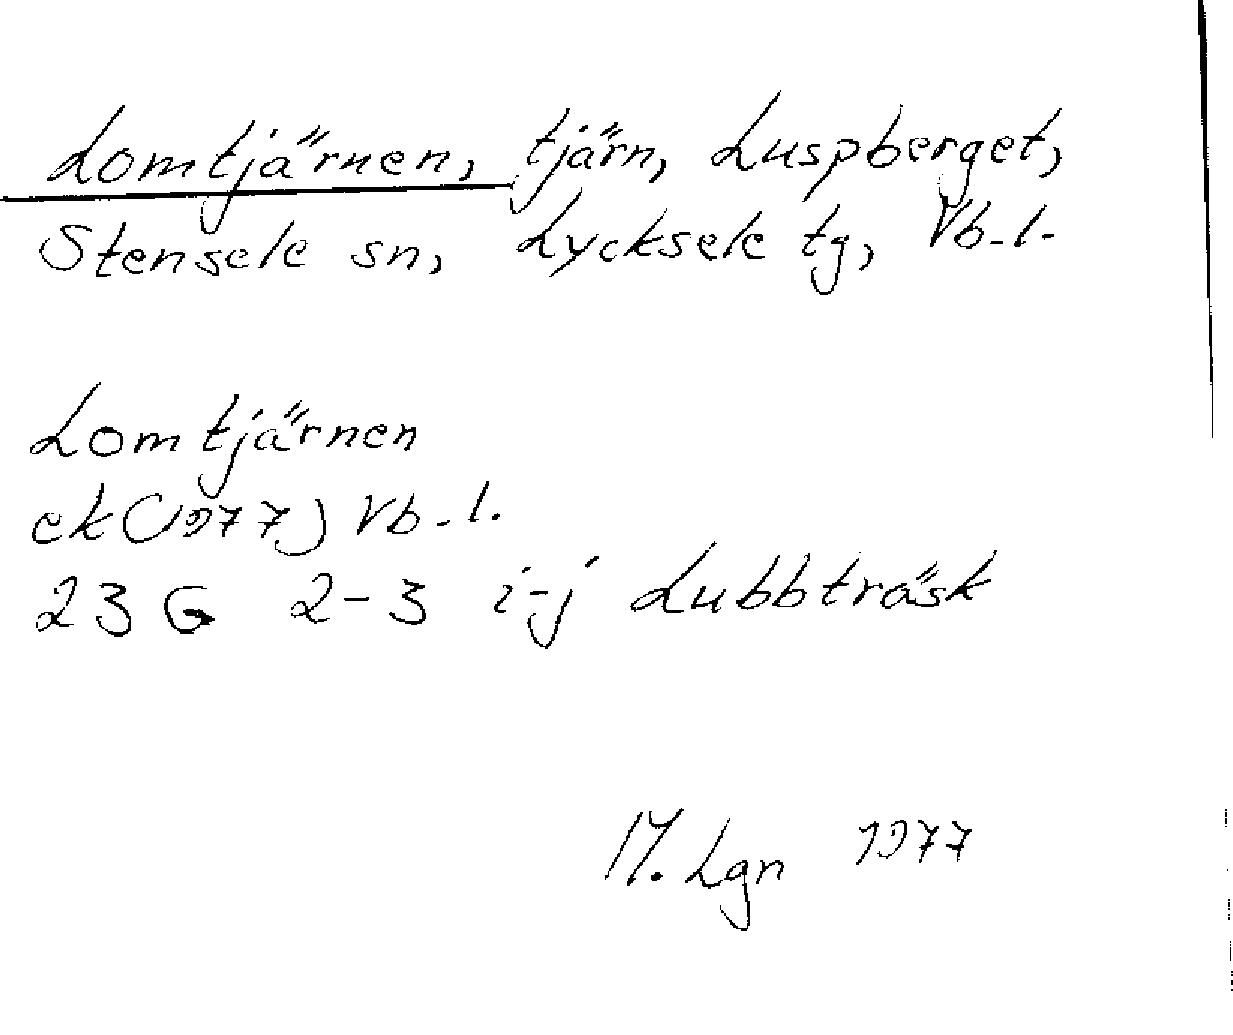 Lomtjärnen, tjärn, Luspberget,
Stensele sn, Lycksele tg, Vb-l.
Lomtjärnen
ek (1977) Vb-l.
23 G 2-3 i-j Lubbträsk
M. Lgn 1977